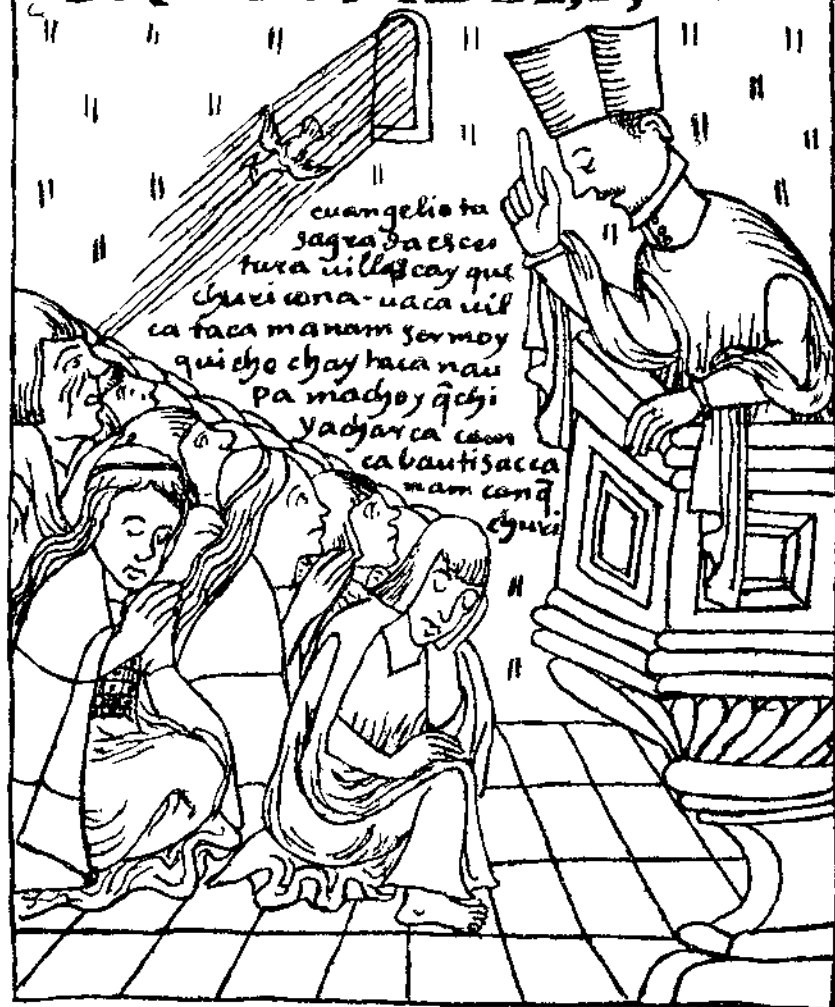 euangelio ta
sagrada escri
tura uillascay que
churicona - uaca uil
ca taca manam sermoy
quicho chay taca nau
pa machoy q̃chi
yacharca conan
ca bautisacca
nam canq̃
churi